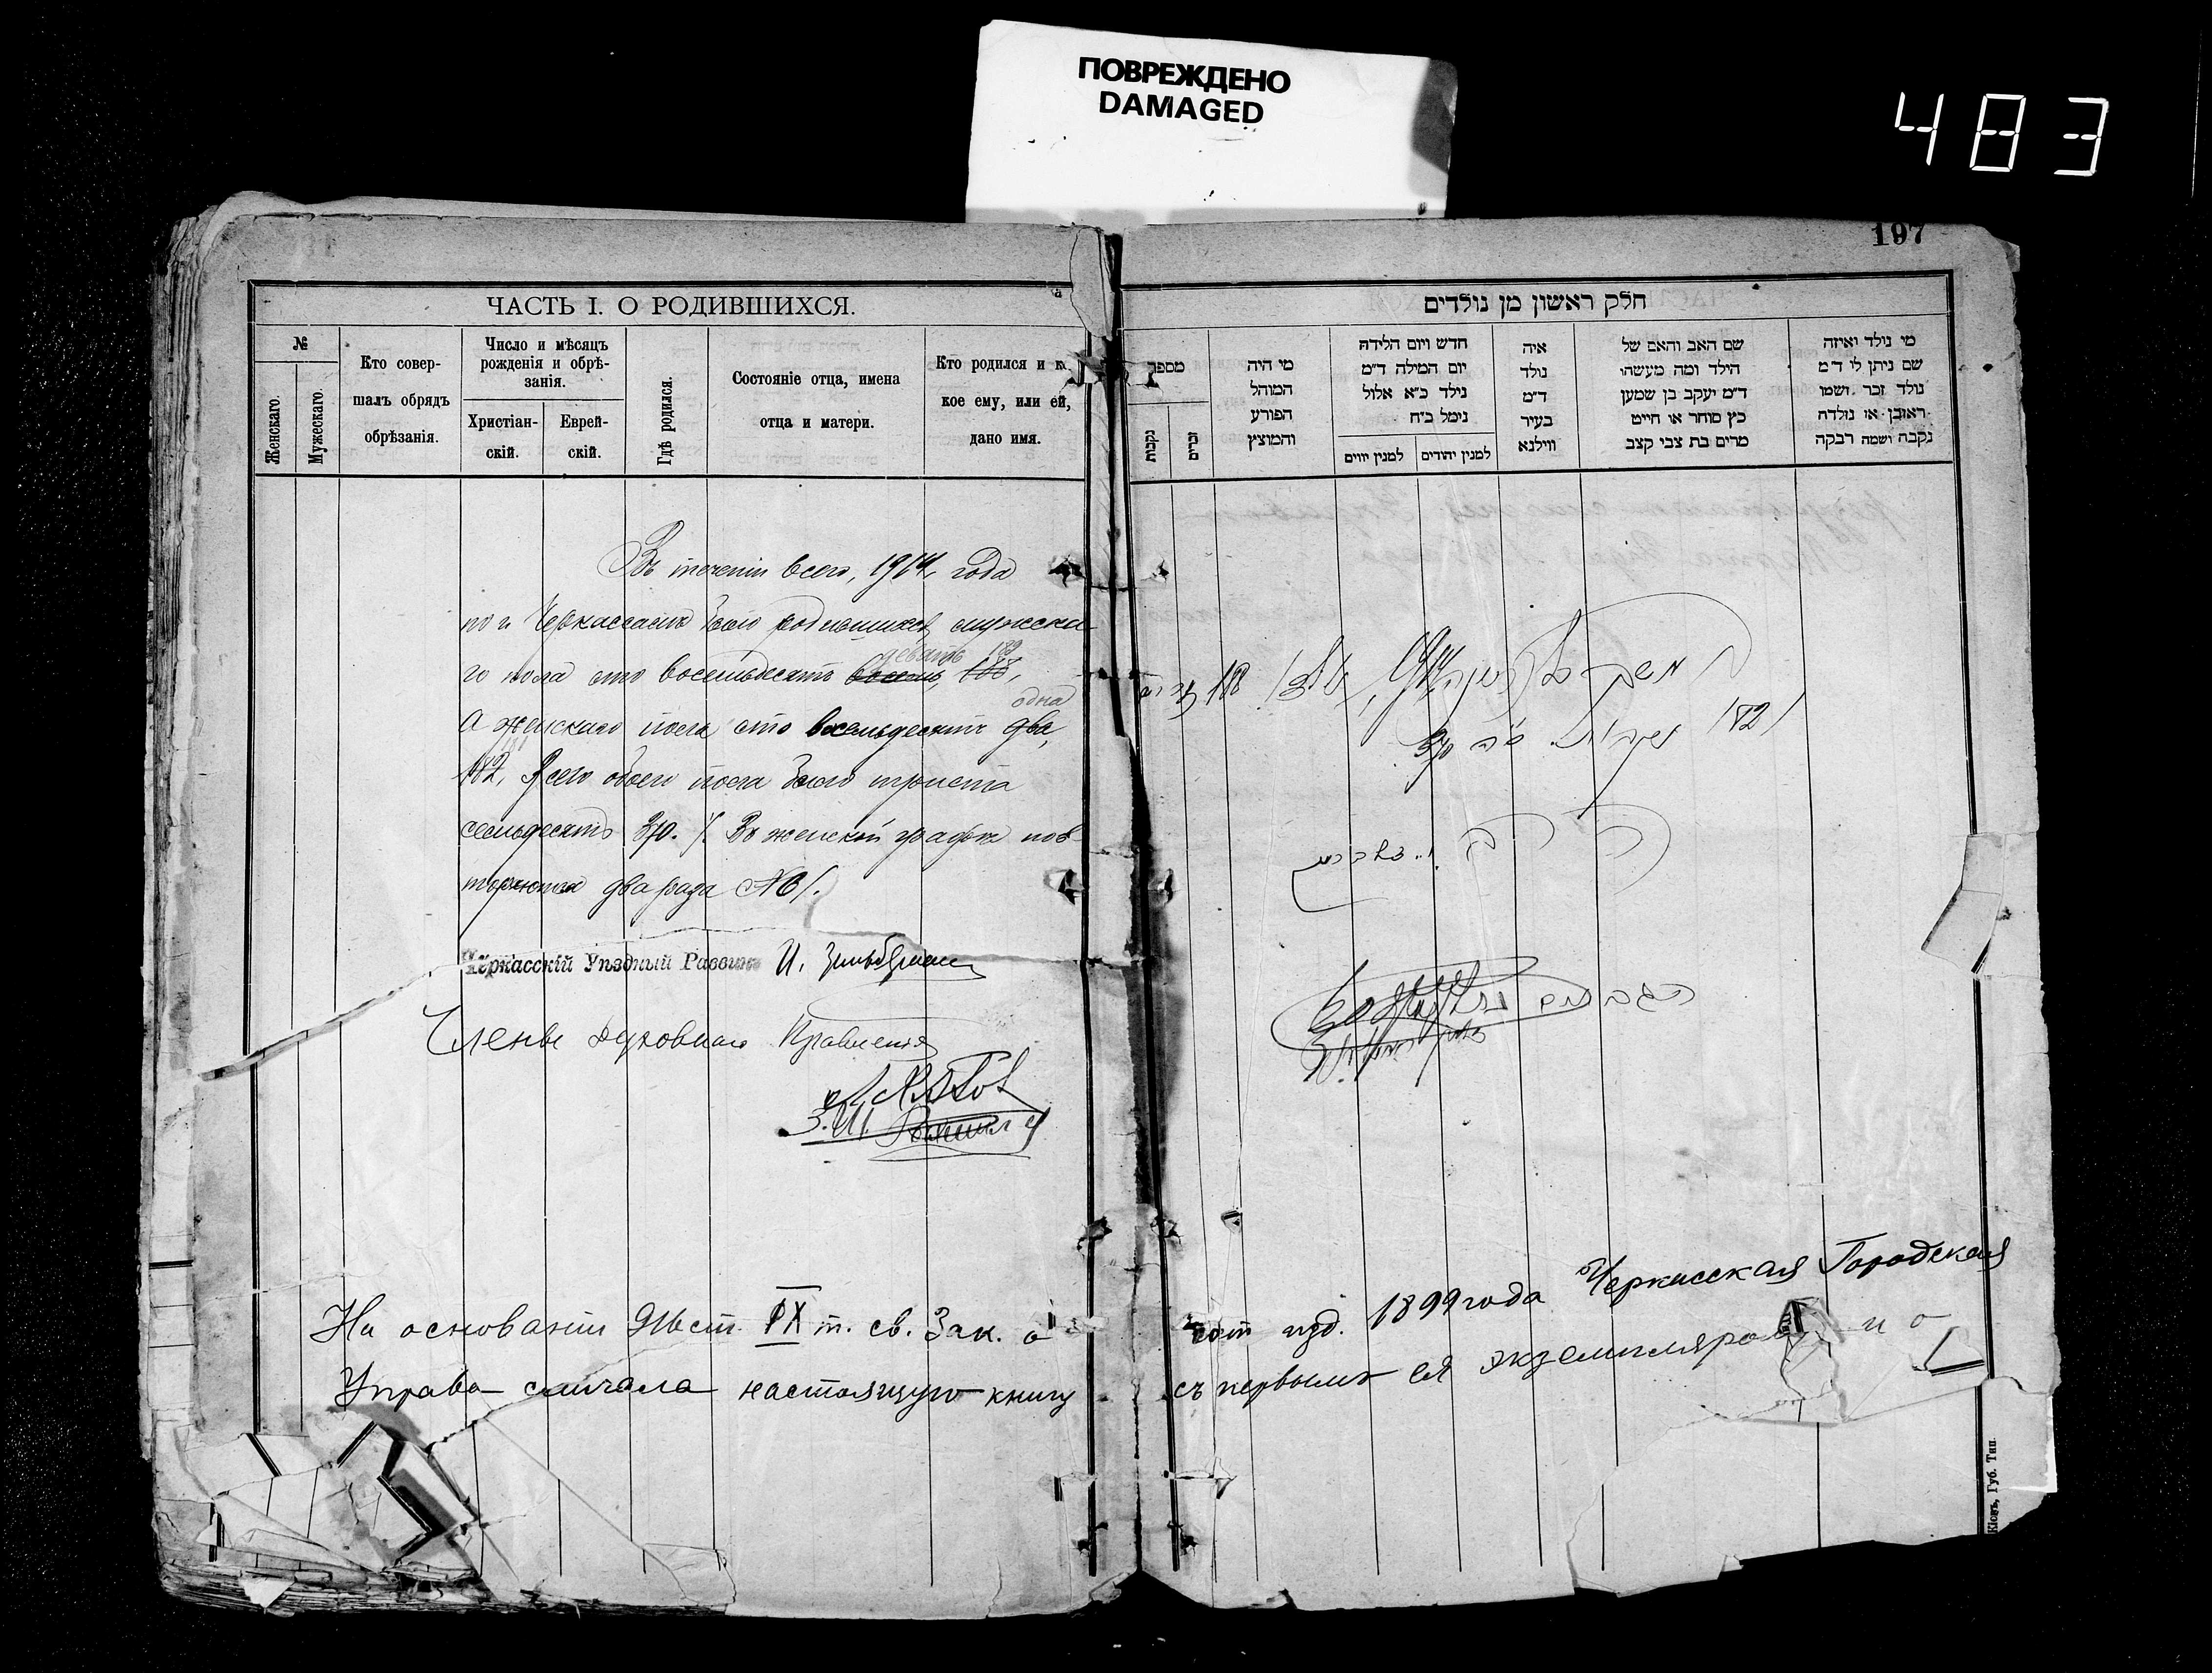 ПОВРЕЖДЕНО
DAMAGED
483
197
ЧАСТЬ I. О РОДИВШИХСЯ.
№
Женскаго.
Мужескаго.
Кто совер-
шалъ обрядъ
обрѣзанія.
Число и мѣсяцъ
рожденія и обрѣ-
занія.
Христіан-
скій.
Еврей-
скій.
Гдѣ родился.
Состояніе отца, имена
отца и матери.
Кто родился и ка
кое ему, или ей,
дано имя.
Въ теченіи всего, 1914 года
по г. Черкассамъ было родившихся мужска-
го пола сто восемьдесятъ восемь, 188,
девять 189
а женскаго пола сто восемьдесятъ два,
одна
182, Всего обоего пола было триста
181
семьдесятъ 370. /. Въ женской графѣ пов-
торяются два раза №
Черкасскій Уѣздный Раввинъ И. Зильберман
Члены духовнаго Правленія
На основаніи ст. IX т. св. Зак. о сост изд. 1899 года Черкасская Городская
Управа сличала настоящую книгу съ первымъ ея экземпляромъ и о
חלק ראשון מן נולדים
מספר
נקבות
זכרים
מי היה
המוהל
הפורע
והמוצץ
חדש ויום הלידה
יום המילה ד״מ
נילד כ״א אלול
נימל כ״ח
למנין יווים
למנין יהודים
איה
נולד
ד״מ
בעיר
ווילנא
שם האב והאם של
הילד ומה מעשהו
ד״מ יעקב בן שמען
כץ סוחר או חייט
מרים בת צבי קצב
מי נולד ואיזה
שם ניתן לו ד״מ
נולד זכר ושמו
ראובן או נולדה
נקבה ושמה רבקה
188
182
370
Кіевъ, Губ. Тип.